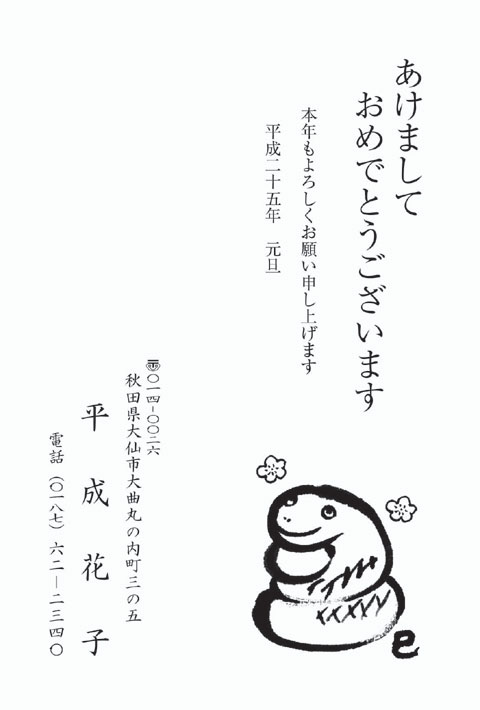 あけまして
おめでとうございます
本年もよろしくお願い申し上げます
平成二十五年　元旦
〒〇一四－〇〇二六
秋田県大仙市大曲丸の内町三の五
平成花子
電話（〇一八七）六二－二三四〇
巳